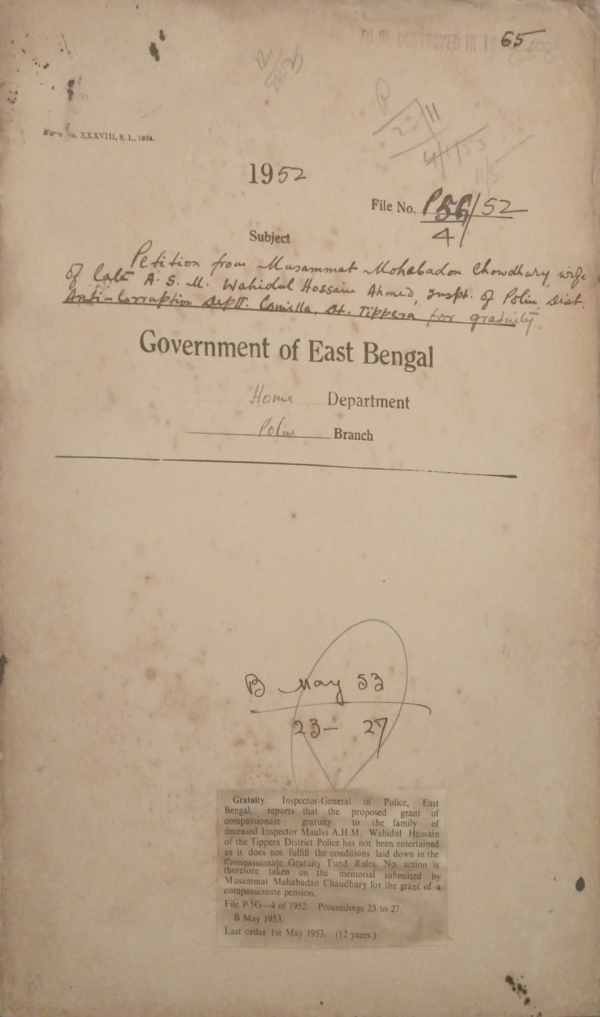 65
Form No. XXXVIII, S. I., 1934.
1952
File No. P5G/52
4
Subject
Petition from Musammat Mohabadon Chowdhury wife
of late A. S. M. Wahidul Hossain Ahmed, Inspt. of Police Dist.
Anti-Corruption Deptt. Comilla, Dt. Tippera for gratuity.
Government of East Bengal
Home Department
Police Branch
B May 53
23- 27
Gratuity. Inspector-General of Police, East
Bengal, reports that the proposed grant of
compassionate gratuity to the family of
deceased Inspector Maulvi A.H.M. Wahidul Hussain
of the Tippera District Police has not been entertained
as it does not fulfill the conditions laid down in the
Compassionate Gratuity Fund Rules. No action is
therefore taken on the memorial submitted by
Musammat Mahabadan Chaudhury for the grant of a
compassionate pension.
File P 5G—4 of 1952. Proceedings 23 to 27.
B May 1953.
Last order 1st May 1953. (12 years.)